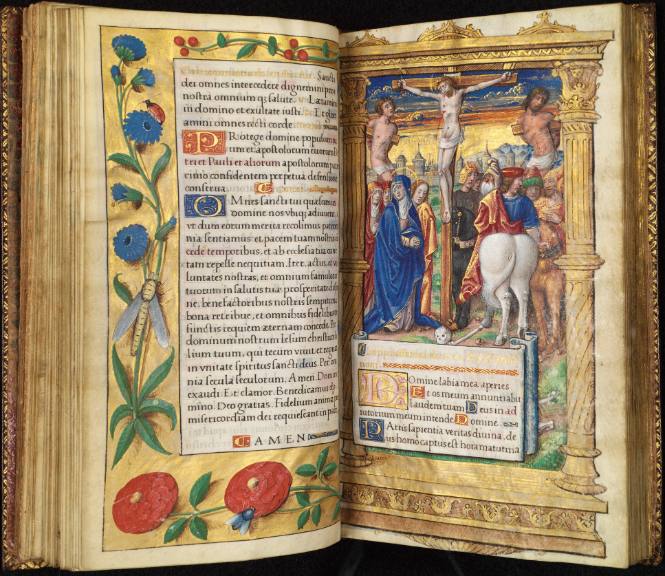 Sancti
dei omnes intercedere dignemini pro
nostra omniumq; salute. Lætamini
in domino et exultate iusti. Et glori
amini omnes recti corde
PRotege domine populum tu
um et apostolorum tuorum
Pauli et aliorum apostolorum patro
cinio confidentem perpetua defensione
conserua.
OMnes sancti tui quæsumus
domine nos vbiq; adiuuent,
vt dum eorum merita recolimus patroci
nia sentiamus: et pacem tuam nostris
cede temporibus, et ab ecclesia tua cunc
tam repelle nequitiam, Iter, actus, et vo
luntates nostras, et omnium famulorum
tuorum in salutis tuæ prosperitate dispo
ne, benefactoribus nostris sempiterna
bona retribue, et omnibus fidelibus de
functis requiem æternam concede. Per
dominum nostrum Iesum christum fi
lium tuum, qui tecum viuit et regnat
in vnitate spiritus sancti deus. Per om
nia secula seculorum. Amen. Domine
exaudi. Et clamor. Benedicamus do
mino. Deo gratias. Fidelium animæ per
misericordiam dei requiescant in pace
AMEN
DOmine labia mea aperies
Et os meum annuntiabit
laudem tuam Deus in ad
iutorium meum intende Domine.
PAtris sapientia veritas diuina, de
us homo captus est hora matutina